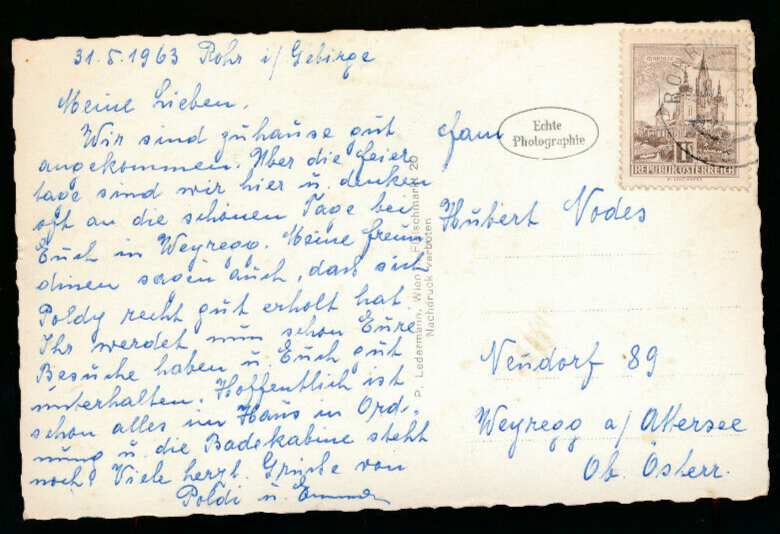 31.5.1963 Rohr i/Gebirge
Meine Lieben.
Wir sind zuhause gut
angekommen. Über die Feier
tage sind wir hier u. denken
oft an die schönen Tage bei
Euch in Weyregg. Meine Freun
dinen sagen auch, dass sich
Poldy recht gut erholt hat.
Ihr werdet nun schon Eure
Besuche haben u. Euch gut
unterhalten. Hoffentlich ist
schon alles im Haus in Ord-
nung u. die Badekabine steht
noch? Viele herzl. Grüße von
Poldi u.
P. Ledermann, Wien I, Fleischmarkt 20
Nachdruck verboten
Echte
Photographie
1S
REPUBLIK ÖSTERREICH
Fam
Hubert Nodes
Neudorf 89
Weyregg a/Attersee
Ob. Österr.